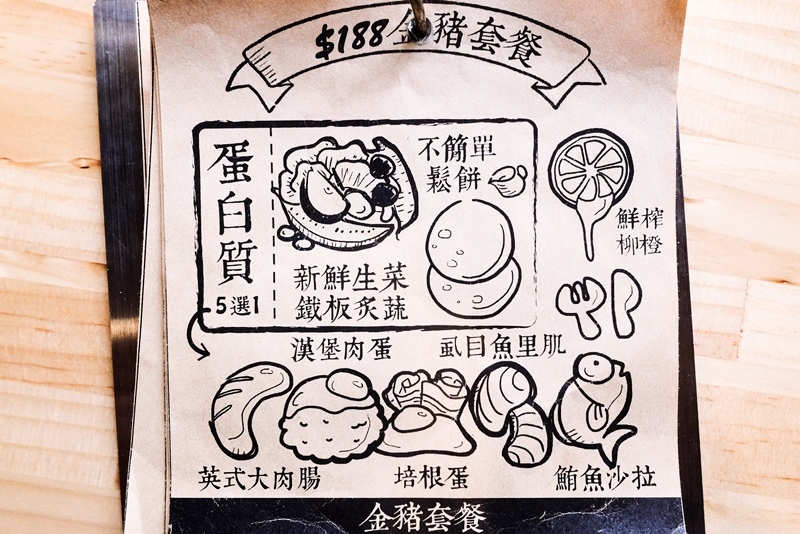 $188金豬套餐
蛋白質
5選1
新鮮生菜
鐵板炙蔬
不簡單
鬆餅
鮮榨
柳橙
漢堡肉蛋
虱目魚里肌
英式大肉腸
培根蛋
鮪魚沙拉
金豬套餐